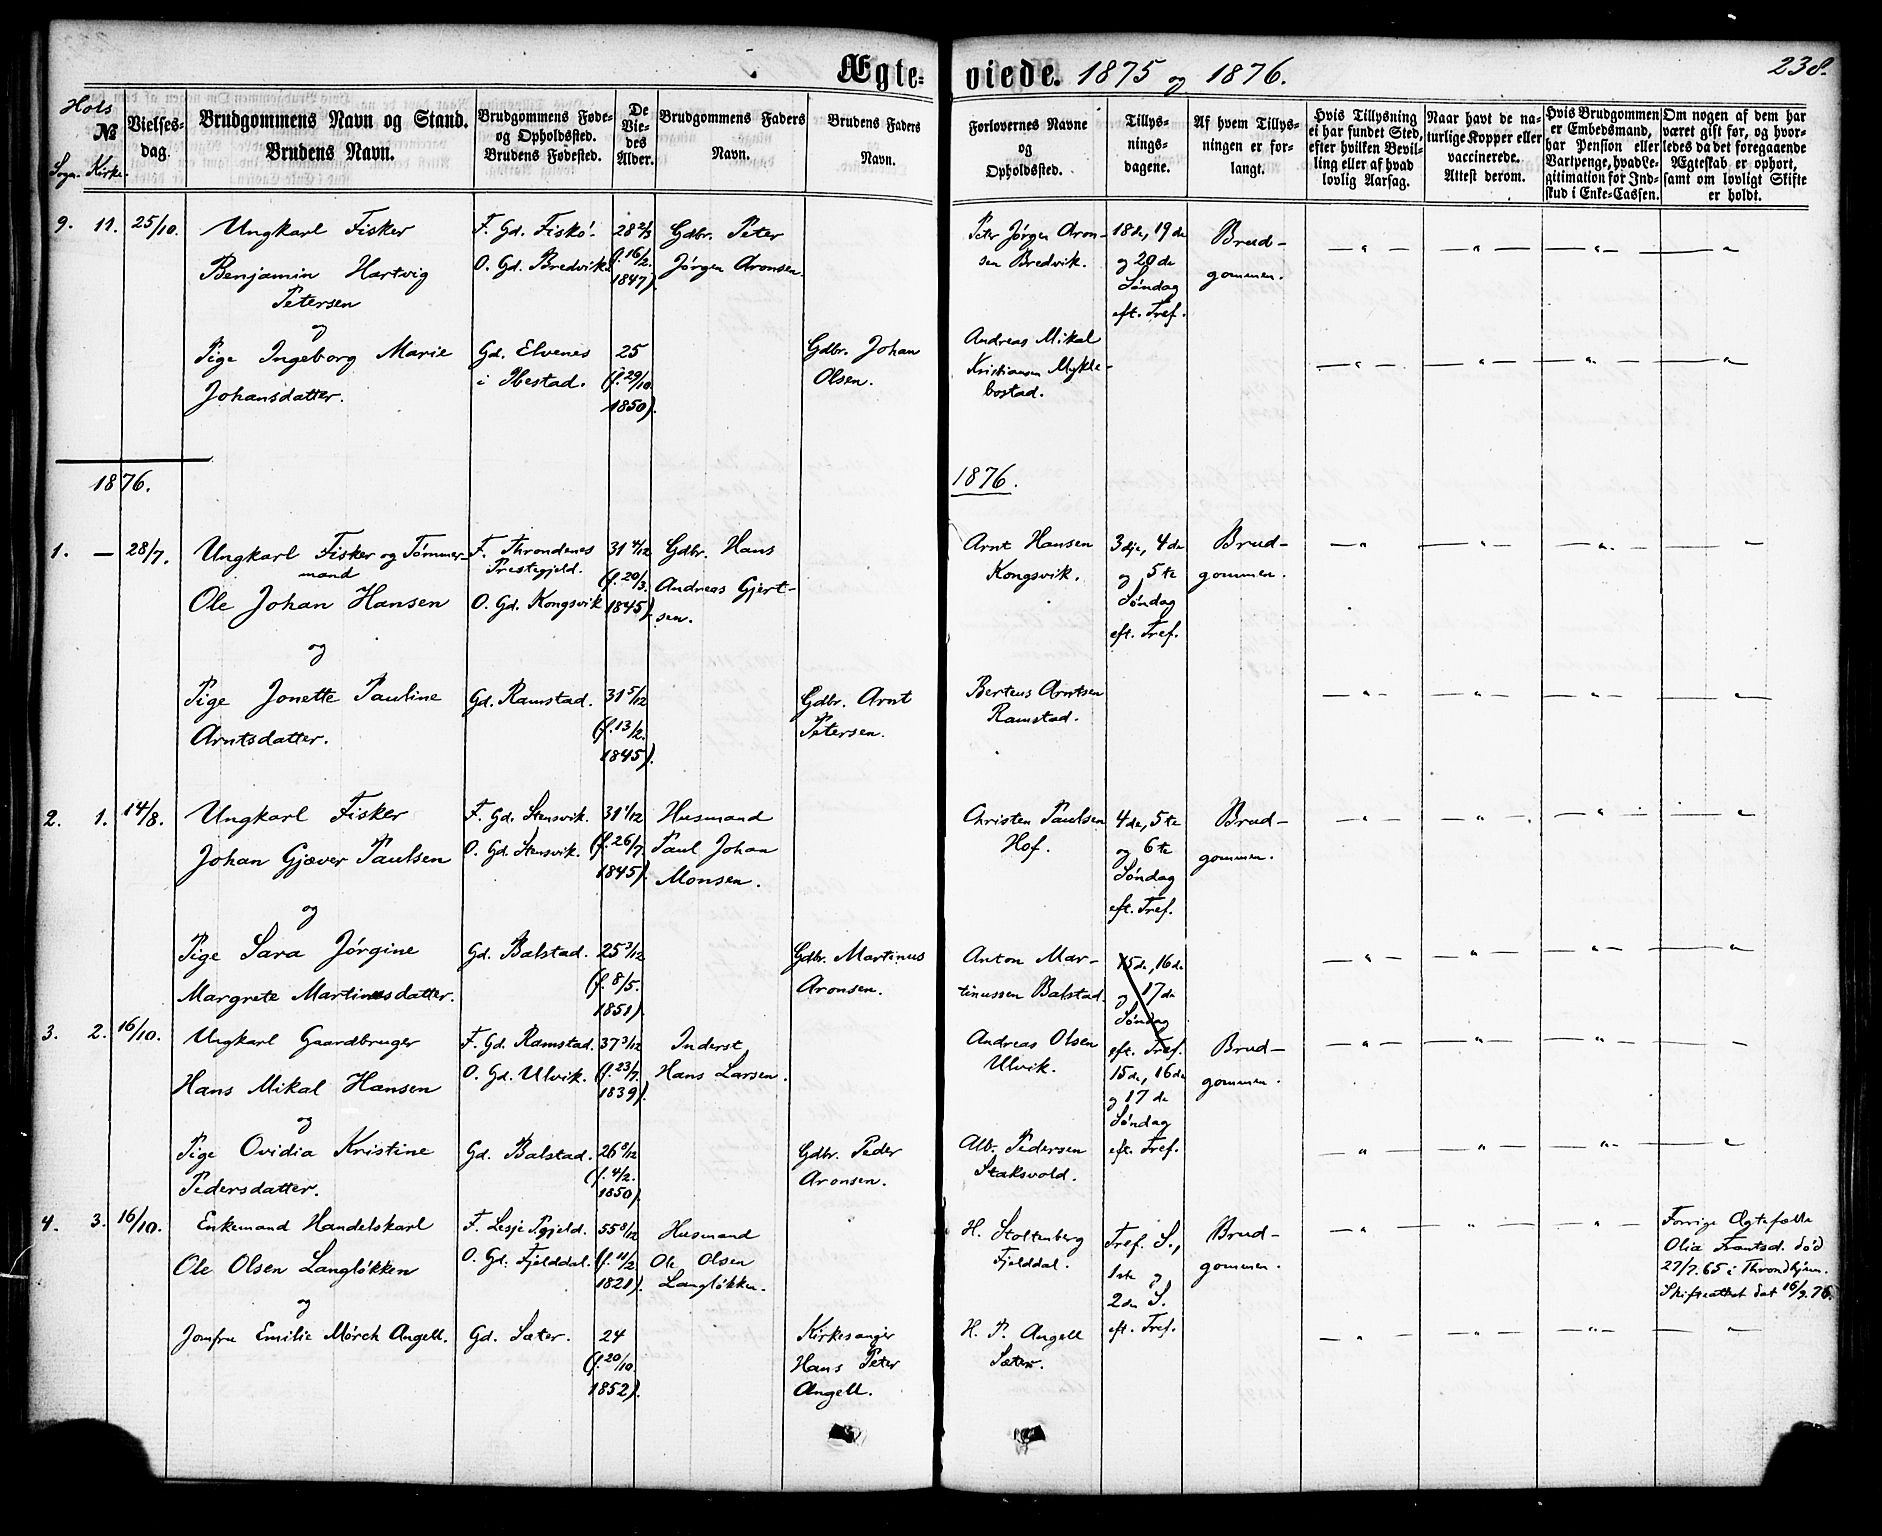 Ægte=
viede. 1875 og 1876.
238.
Hols
№
Sogn. Kirke.
Vielses=
dag.
Brudgommens Navn og Stand.
Brudens Navn.
Brudgommens Føde=
og Opholdssted.
Brudens Fødested.
De
Vie=
des
Alder.
Brudgommens Faders
Navn.
Brudens Faders
Navn.
Forlovernes Navne
og
Opholdssted.
Tillys=
nings=
dagene.
Af hvem Tillys=
ningen er for=
langt.
Hvis Tillysning
ei har fundet Sted,
efter hvilken Bevil=
ling eller af hvad
lovlig Aarsag.
Naar havt de na=
turlige Kopper eller
vaccinerede.
Attest derom.
Hvis Brudgommen
er Embedsmand,
har Pension eller
Vartpenge, hvad Le=
gitimation for Ind=
skud i Enke=Cassen.
Om nogen af dem har
været gift før, og hvor=
ledes da det foregaaende
Ægteskab er ophørt,
samt om lovligt Skifte
er holdt.
9. 11. 25/10.
Ungkarl Fisker
Benjamin Hartvig
Petersen
og
Pige Ingeborg Marie
Johansdatter.
F. Gd. Fiskø.
O. Gd. Bredvik.
Gd. Elvenes
i Ibestad.
28 2/3
(f. 16/2.
1847).
25
(f. 29/10.
1850).
Gdbr. Peter
Jørgen Aronsen.
Gdbr. Johan
Olsen.
Peter Jørgen Aron-
sen Bredvik.
Andreas Mikal
Kristiansen Mykle-
bostad.
18de, 19de
og 20de
Søndag
eft. Tref.
Brud-
gommen.
1876.
1876.
1. — 28/7.
Ungkarl Fisker og Tømmer-
mand
Ole Johan Hansen
og
Pige Jonette Pauline
Arntsdatter.
F. Throndenes
Prestegjeld.
O. Gd. Kongsvik
Gd. Ramstad.
31 4/12
(f. 20/3.
1845).
31 5/12
(f. 13/2.
1845).
Gdbr. Hans
Andreas Gjert-
sen.
Gdbr. Arnt
Petersen.
Arnt Hansen
Kongsvik.
Berteus Arntsen
Ramstad.
3dje, 4de
og 5te
Søndag
eft. Tref.
Brud-
gommen.
2. 1. 14/8.
Ungkarl Fisker
Johan Gjæver Paulsen
og
Pige Sara Jørgine
Margrete Martinusdatter.
F. Gd. Stensvik.
O. Gd. Stensvik.
Gd. Balstad.
31 1/12
(f. 26/7.
1845).
25 3/12
(f. 8/5.
1851).
Husmand
Paul Johan
Monsen.
Gdbr. Martinus
Aronsen.
Christen Paulsen
Hof.
Anton Mar-
tinussen Balstad.
4de, 5te
og 6te
Søndag
eft. Tref.
15de, 16de
og 17de
Søndag
eft. Tref.
Brud-
gommen.
3. 2. 16/10.
Ungkarl Gaardbruger
Hans Mikal Hansen
og
Pige Ovidia Kristine
Pedersdatter.
F. Gd. Ramstad.
O. Gd. Ulvik.
Gd. Balstad.
37 3/12
(f. 23/7.
1839).
26 8/12
(f. 4/2.
1850).
Inderst
Hans Larsen.
Gdbr. Peder
Aronsen.
Andreas Olsen
Ulvik.
Alb. Pedersen
Staksvold.
15de, 16de
og 17de
Søndag
eft. Tref.
Brud-
gommen.
4. 3. 16/10.
Enkemand Handelskarl
Ole Olsen Langløkken
og
Jomfru Emilie Mørch Angell.
F. Lesje Pgjeld.
O. Gd. Fjelddal.
Gd. Sæter.
55 8/12
(f. 11/2.
1821).
24
(f. 20/10.
1852).
Husmand
Ole Olsen
Langløkken.
Kirkesanger
Hans Peter
Angell.
H. Stoltenberg
Fjelddal.
H. P. Angell
Sæter.
Tref. S.,
1ste og
2den S.
eft. Tref.
Brud-
gommen.
Forrige Ægtefælle
Olia Frantsd. død
27/7.65 i Throndhjem.
Skifteattest dat 16/9.76.